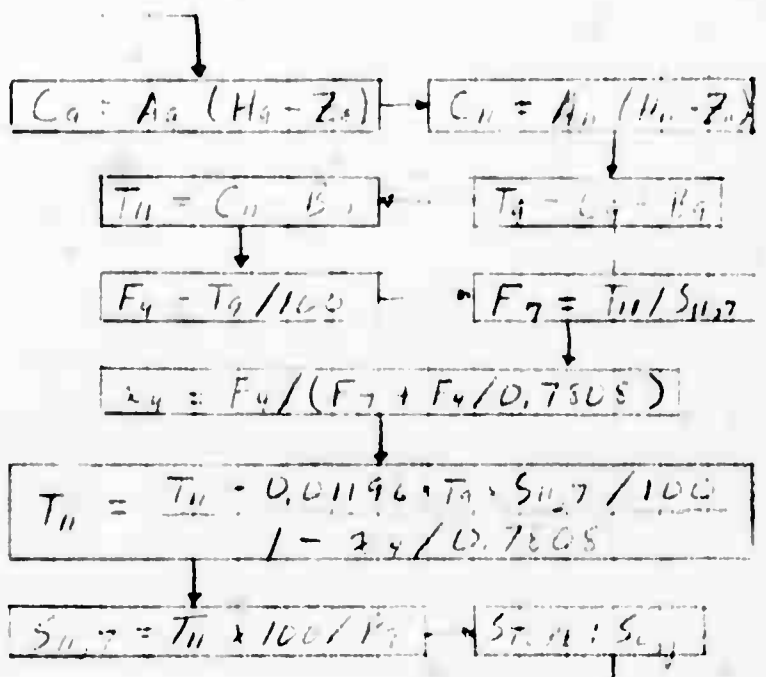 C₉ = A₉ (H₉ - Z₉) C₁₁ = A₁₁ (H₁₁ - Z₁₁)
T₁₁ = C₁₁ - B₁₁ T₉ = C₉ - B₉
F₄ = T₉/100 F₇ = T₁₁/S₁₁,₇
x₄ = F₄/(F₇ + F₄/0.7808)
T₁₁ = T₁₁ - 0.01196 · T₉ · S₁₁,₇ / 100
1 - x₄/0.7808
S₁₁,₇ = T₁₁ x 100/